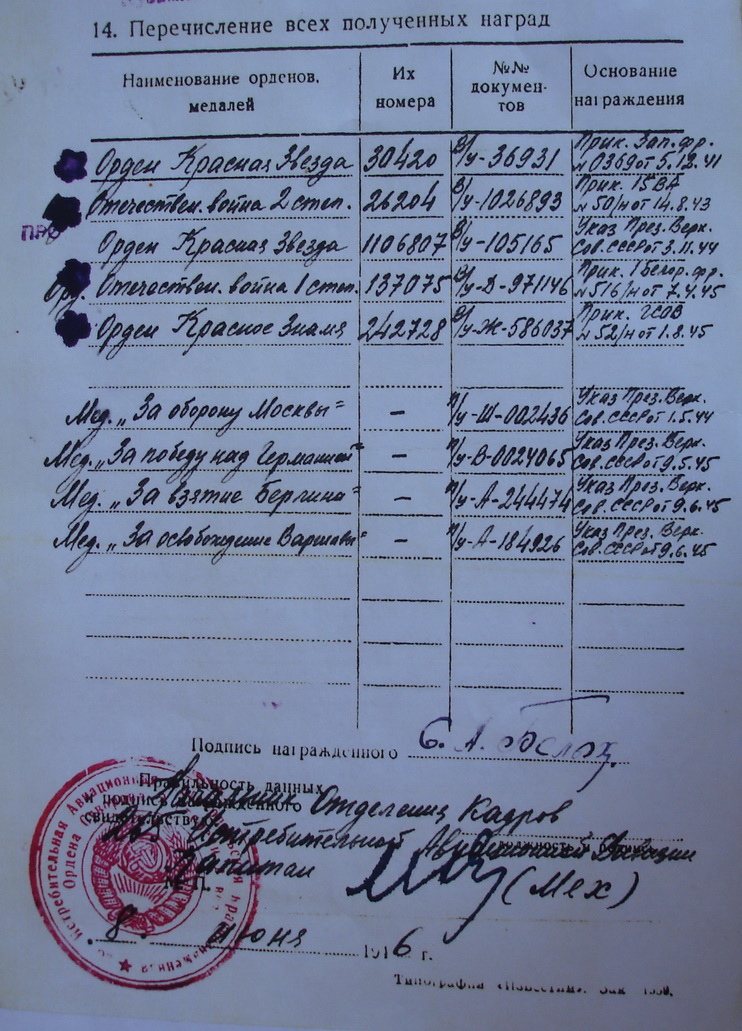 14. Перечисление всех полученных наград
Наименование орденов, медалей
Их номера
№№ докумен-тов
Основание награждения
Орден Красная Звезда 30420 в/у-36931 Прик. Зап. фр. №0369 от 5.12.41
Отечествен. война 2 степ. 26204 в/у-1026893 Прик. 15 ВА №50/н от 14.8.43
Орден Красная Звезда 1106807 в/у-105165 Указ През. Верх. Сов. СССР от 3.11.44
Орд. Отечествен. война 1 степ. 137075 в/у-Д-971146 Прик. 1 Белор. фр. №516/н от 7.4.45
Орден Красное Знамя 242728 в/у-Ж-586037 Прик. ГСОВ №52/н от 1.8.45
Мед. „За оборону Москвы" – п/у-Ш-002436 Указ През. Верх. Сов. СССР от 1.5.44
Мед. „За победу над Германией" – п/у-В-0024065 Указ През. Верх. Сов. СССР от 9.5.45
Мед. „За взятие Берлина" – п/у-А-244474 Указ През. Верх. Сов. СССР от 9.6.45
Мед. „За освобождение Варшавы" – п/у-А-184926 Указ През. Верх. Сов. СССР от 9.6.45
Подпись награжденного
Правильность данных
и подпись награжденного Отделения Кадров
свидетельствую Истребительной Авиационной Дивизии
Капитан (Мех)
М. П.
8 июня 1946 г.
Типография «Известий». Зак